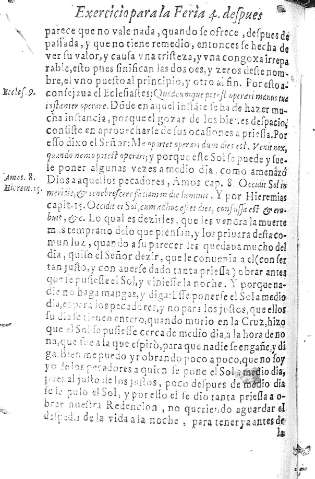 Exercicio para la Feria 4. despues
parece que no vale nada, quando se ofrece, despues de
passada, y que no tiene remedio, entonces se hecha de
ver su valor, y causa vna tristeza, y vna congoxa irrepa
rable, esto pues sinifican las dos oes, y zeros deste nom-
bre, el vno puesto al principio, y otro al fin. Por esto a-
Eccles. 9.
consejaua el Eclesiastes: Quodcumque potest operari manus tua
instanter operare. Dõde en aquel instãte se ha de hazer mu
cha instancia, porque el gozar de los bienes de espacio,
consiste en aprouecharse de sus ocasiones a priessa. Por
esso dixo el Señor: Me oportet operari dum dies est. Venit nox,
quando nemo potest operari, y porque este Sol se puede y sue-
le poner algunas vezes a medio dia, como amenazó
Amos. 8.
Dios a aquellos pecadores, Amos cap. 8. Occidit Sol in
Hierem. 15.
meridie, & tenebrescere faciam in die lumen. Y por Hieremias
capit. 15. Occidit ei Sol, cum adhuc esset dies, confussa est & eru
buit, &c. Lo qual es dezirles, que les vendra la muerte
mas temprano de lo que piensan, y los priuara desta co-
mun luz, quando a su parecer les quedaua mucho del
dia, quiso el Señor dezir, que le conuenia a el (con ser
tan justo, y con auerse dado tanta priessa) obrar antes
que se pusiesse el Sol, y viniesse la noche. Y porque na-
die no haga mangas, y diga: Esse ponerse el Sol a medio
dia, es para los pecadores, y no para los justos, que ellos
su dia se tienen entero, quando murio en la Cruz, hizo
que el Sol se pusiesse cerca de medio dia, a la hora de no
na, que fue a la que espiró, para que nadie se engañe, y di
ga, bien me puedo yr obrando poco a poco, que no soy
yo de los pecadores a quien se pone el Sol a medio dia,
pues al justo de los justos, poco despues de medio dia
se le puso el Sol, y por esso el se dio tanta priessa a o-
brar nuestra Redencion, no queriendo aguardar el
despedida de la vida a la noche, para tener ya antes de
la